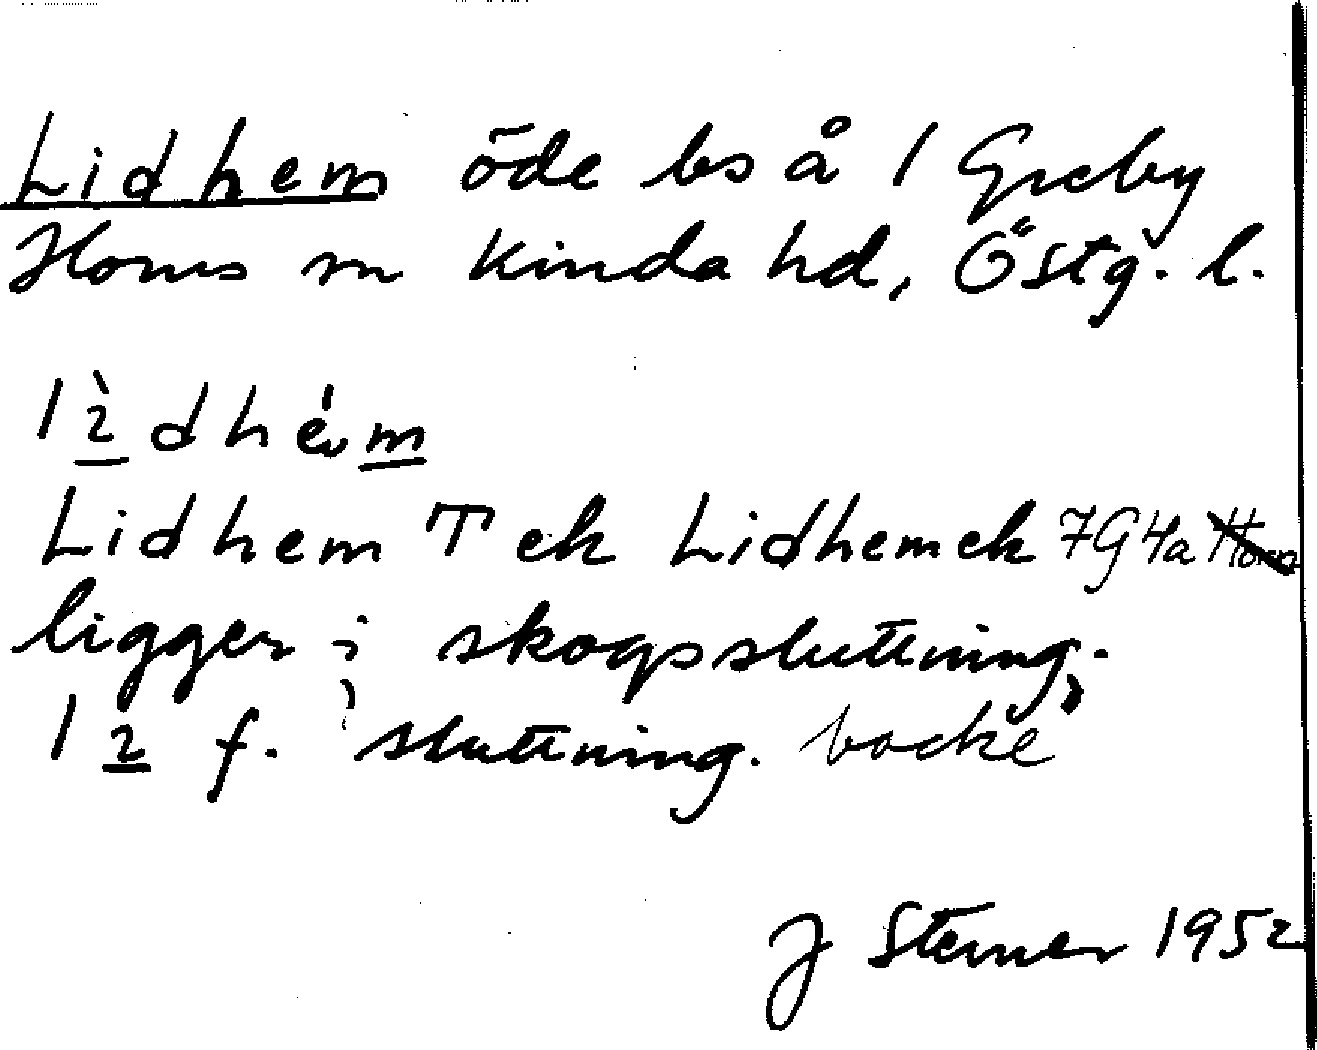 Lidhem öde bs å 1 Greby
Horns sn Kinda hd, Östg. l.
lìdhém
Lidhem T ek Lidhem ek 7G4a Horn
ligger i skogssluttning.
l2 f. sluttning. backe
J Sterner 1952